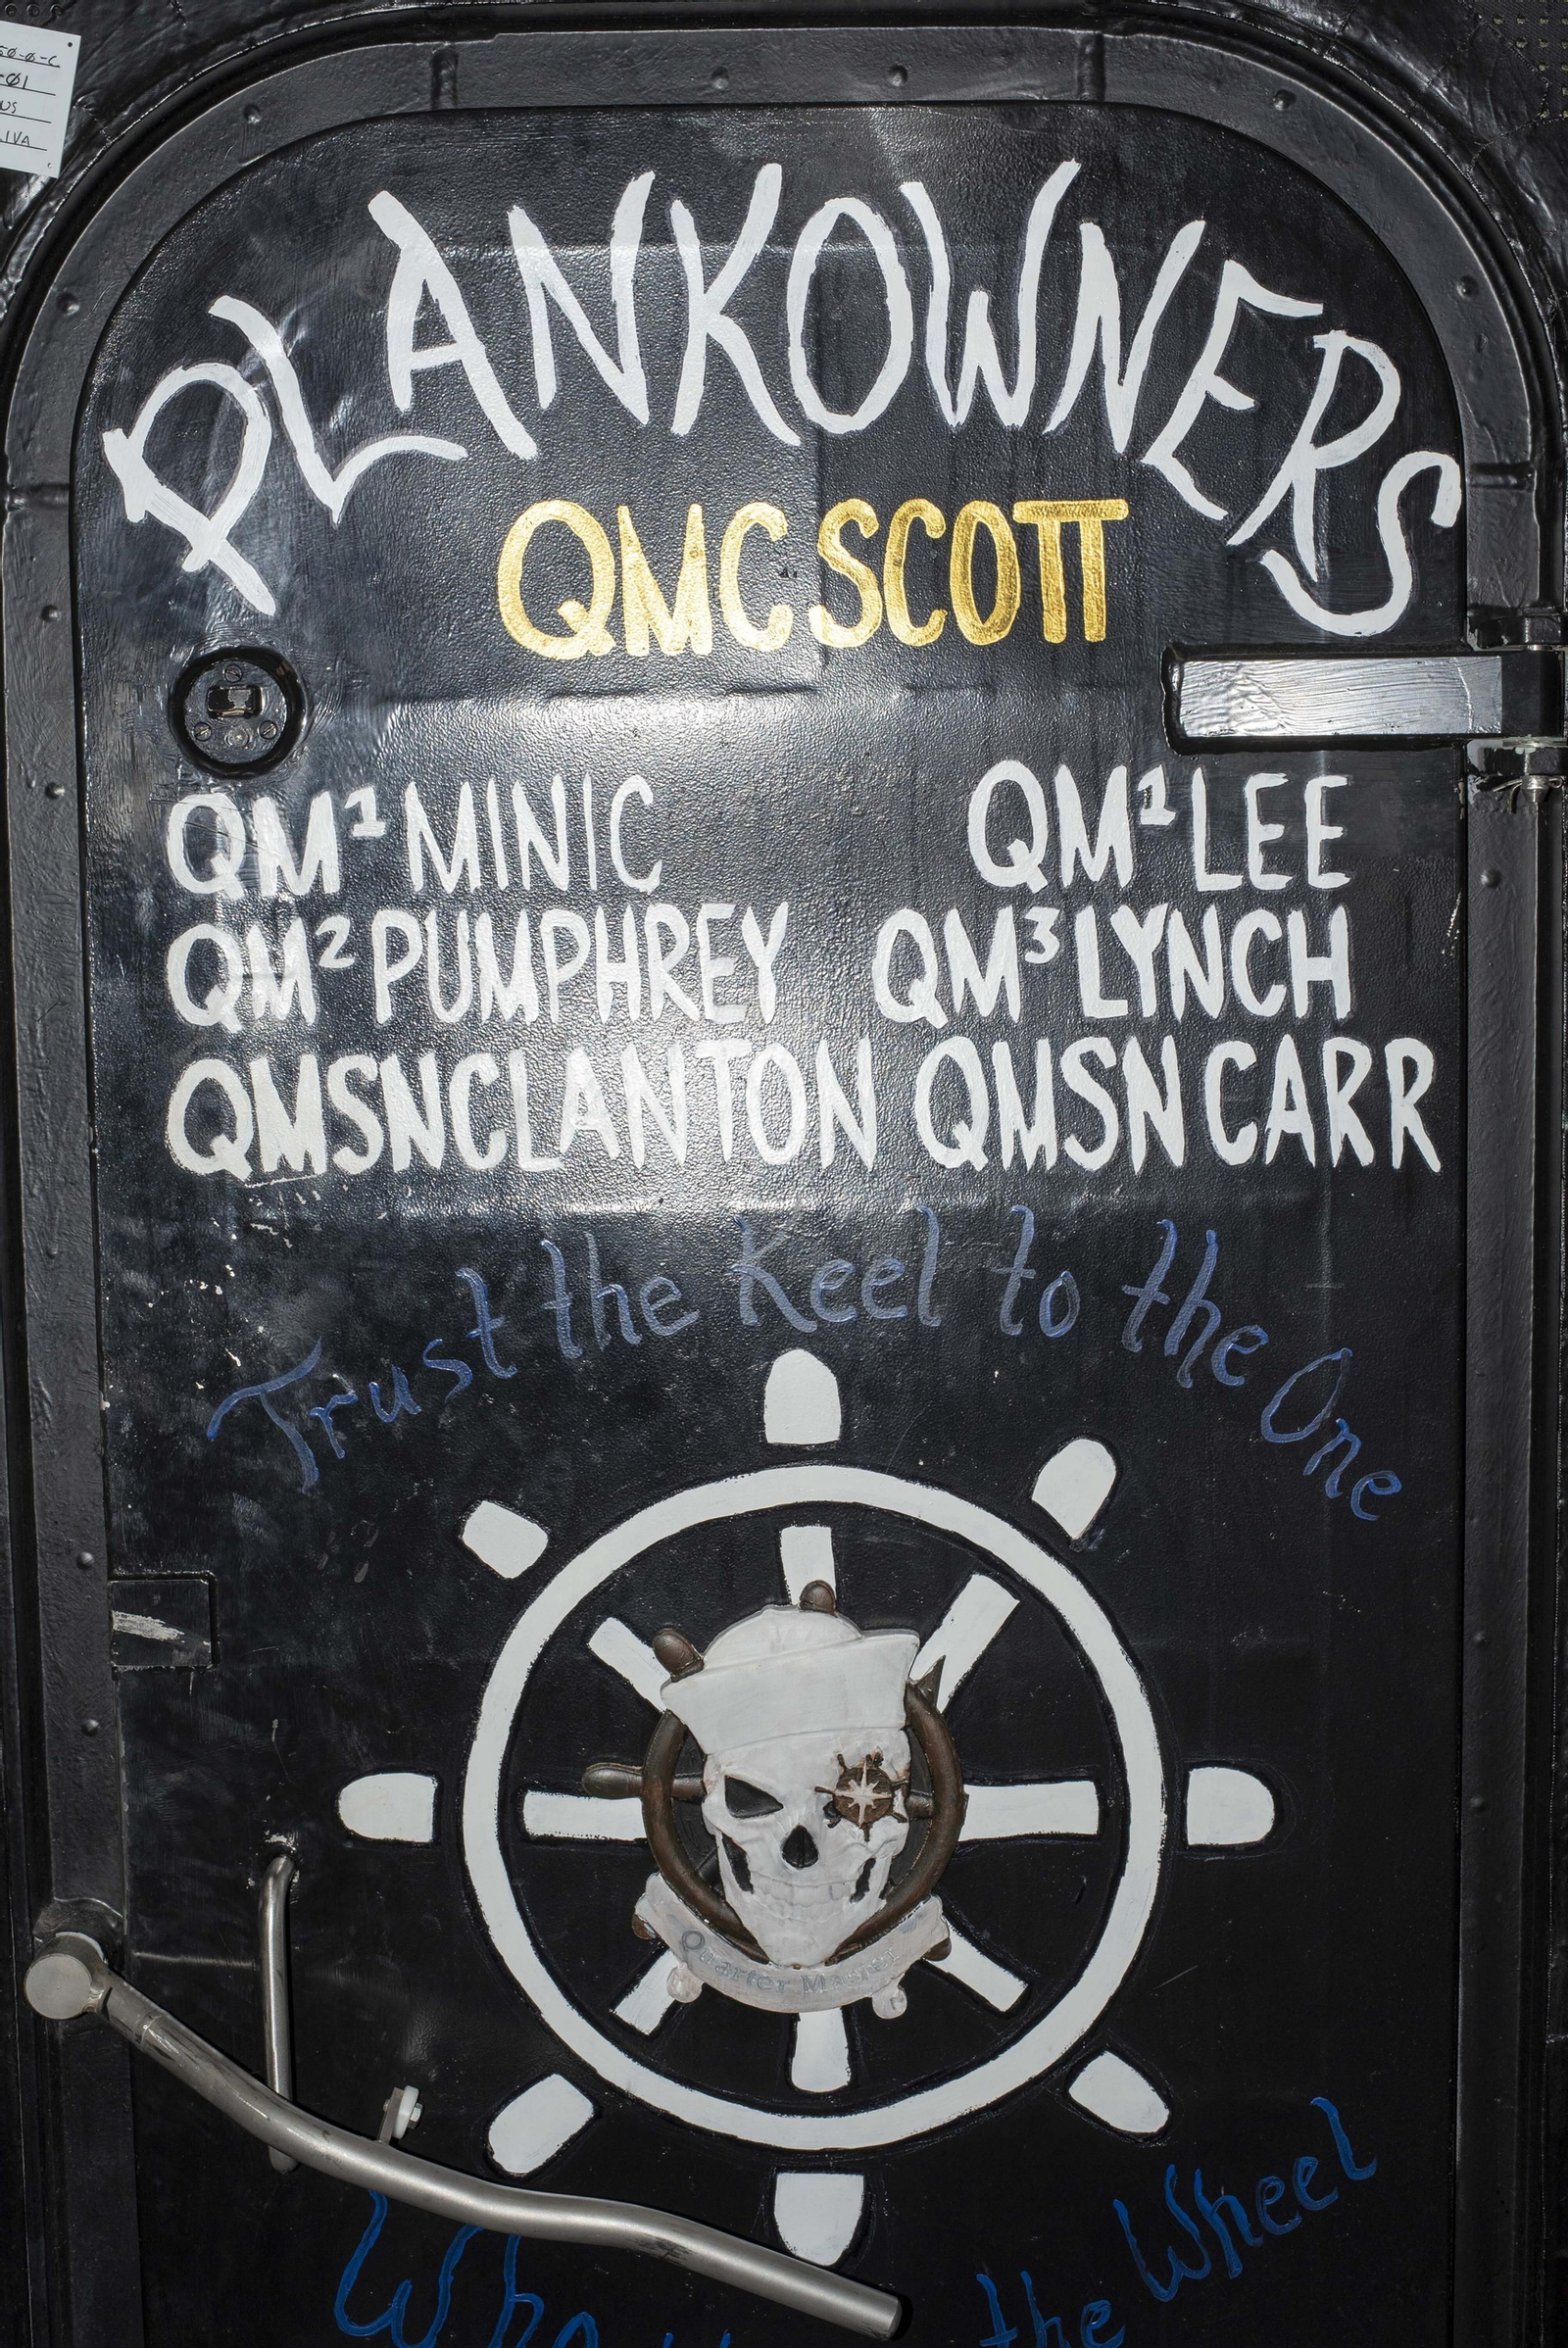 PLANKOWNERS
QMC SCOTT
QM1 MINIC QM1 LEE
QM2 PUMPHREY QM3 LYNCH
QMSN CLANTON QMSN CARR
Trust the Keel to the One
Quarter Master
the Wheel